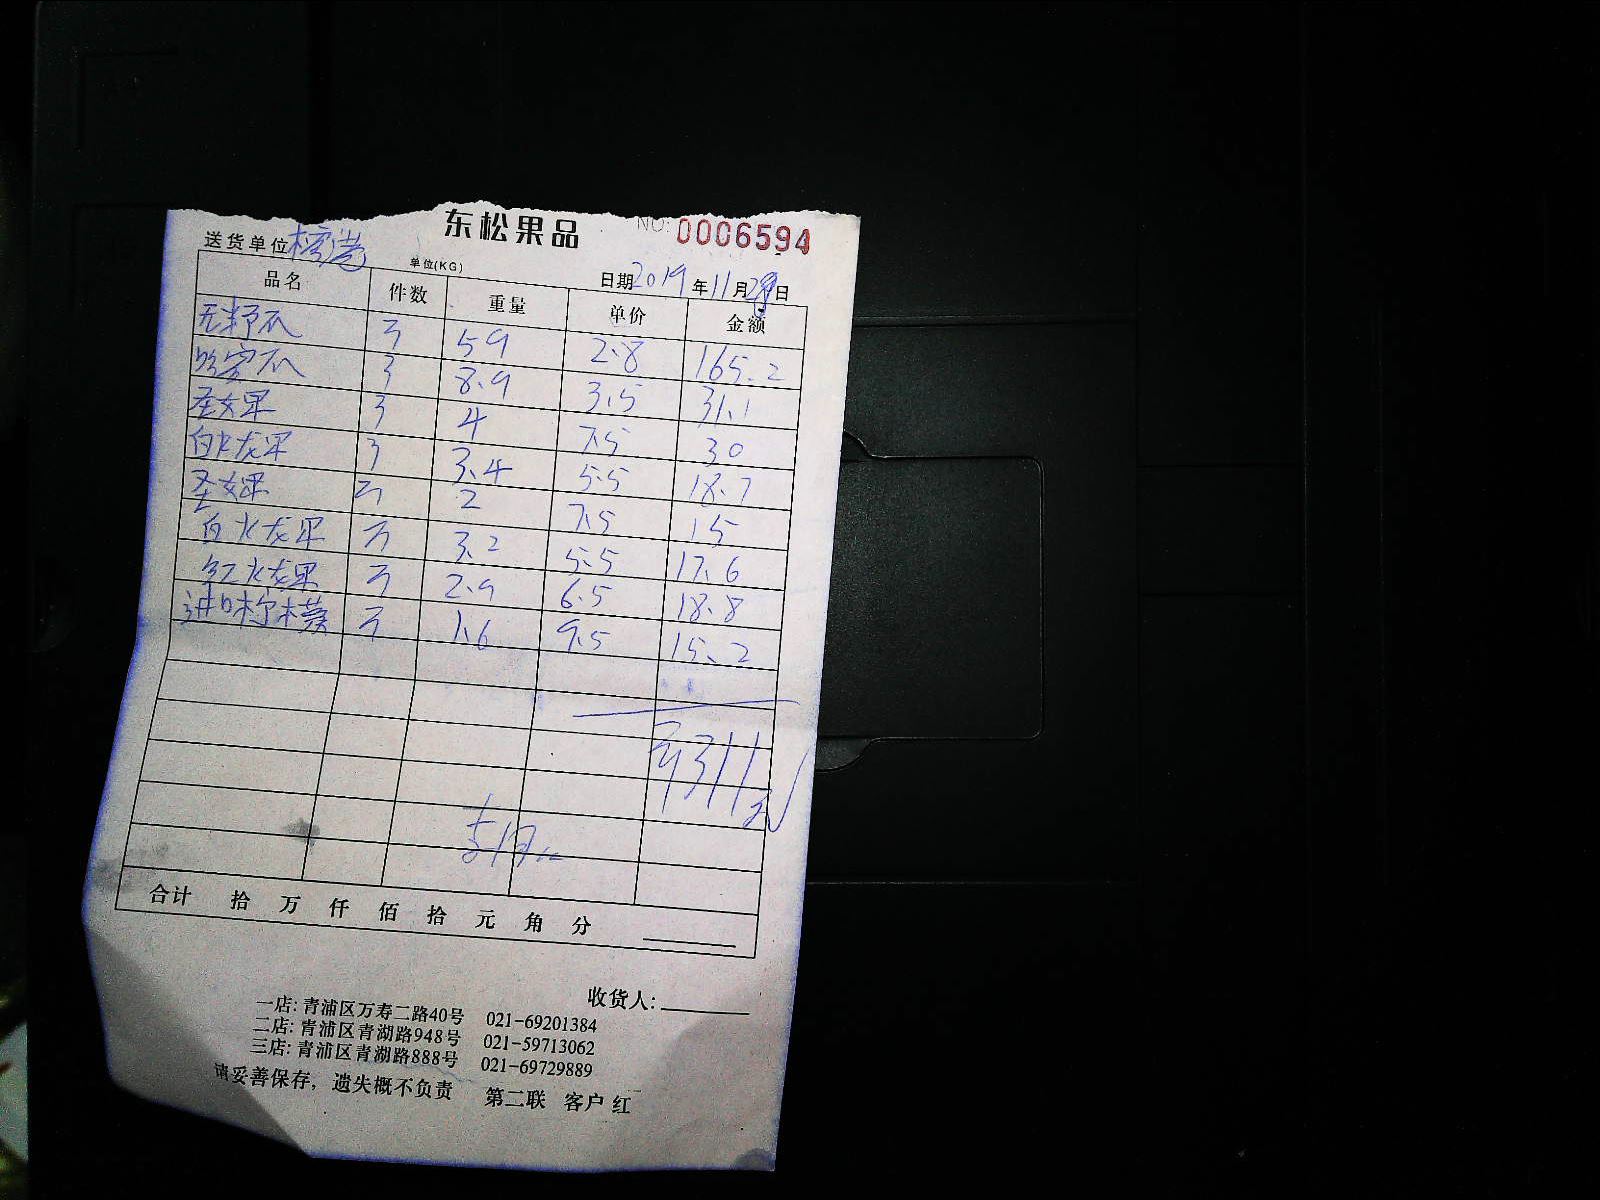 东松果品
NO: 0006594
送货单位
单位(KG)
日期2019年11月29日
品名 件数 重量 单价 金额
无籽瓜 3 59 2.8 165.2
哈密瓜 3 8.9 3.5 31.1
圣女果 3 4 7.5 30
白火龙果 3 3.4 5.5 18.7
圣女果 2 7.5 15
白火龙果 3.2 5.5 17.6
红火龙果 2.9 6.5 18.8
进口柠檬 1.6 9.5 15.2
311
合计 拾 万 仟 佰 拾 元 角 分
收货人:
一店: 青浦区万寿二路40号 021-69201384
二店: 青浦区青湖路948号 021-59713062
三店: 青浦区青湖路888号 021-69729889
请妥善保存，遗失概不负责 第二联 客户 红